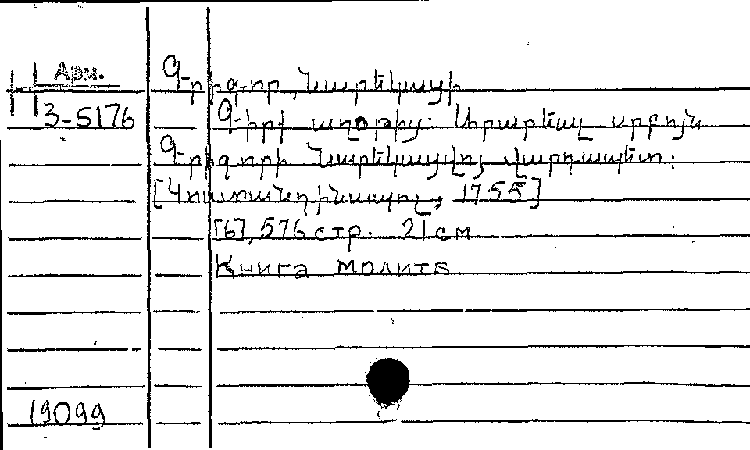 Арм. Գրիգոր Նարեկացի
Н 3-5176 Գիրք աղօթից: Արարեալ սրբոյն
Գրիգորի Նարեկացւոյ վարդապետի:
[Կոստանդինապօլ, 1755]
[6], 576 стр. 21 см
Книга молитв
19099